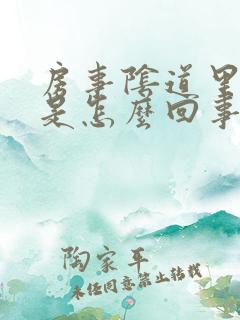 房事陰道里
是怎麼回事
陶家平
未经同意禁止转载